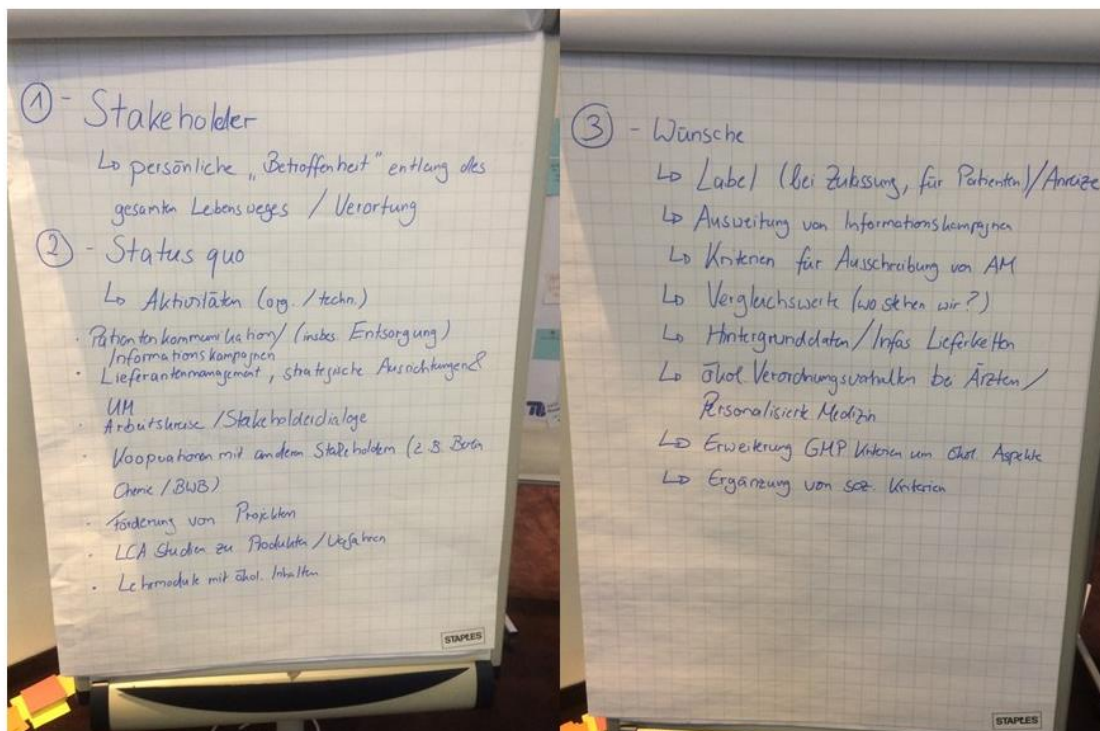 ① - Stakeholder
↳ persönliche „Betroffenheit" entlang des
gesamten Lebensweges / Verortung
② - Status quo
↳ Aktivitäten (org. / techn.)
· Patientenkommunikation / (insbes. Entsorgung)
Informationskampagnen
· Lieferantenmanagement, strategische Ausrichtungen &
UM
· Arbeitskreise / Stakeholderdialoge
· Kooperationen mit anderen Stakeholdern (z.B. Berlin
Chemie / BWB)
· Förderung von Projekten
· LCA Studien zu Produkten / Verfahren
· Lehrmodule mit ökol. Inhalten
STAPLES
③ - Wünsche
↳ Label (bei Zulassung, für Patienten) / Anreize
↳ Ausweitung von Informationskampagnen
↳ Kriterien für Ausschreibung von AM
↳ Vergleichswerte (wo stehen wir?)
↳ Hintergrunddaten / Infos Lieferketten
↳ ökol. Verordnungsverhalten bei Ärzten /
Personalisierte Medizin
↳ Erweiterung GMP Kriterien um ökol. Aspekte
↳ Ergänzung von soz. Kriterien
STAPLES